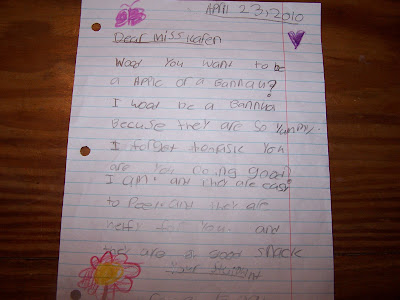 APRIL 23, 2010
Dear miss Kafer
Wood You want to be
a APPle or a Bannau?
I woat be a Bannua
Because they are so Yummy.
I forget to
are You doing good?
I am. and they are easy
to Peel and they are
helfy for You. and
they are a good snack